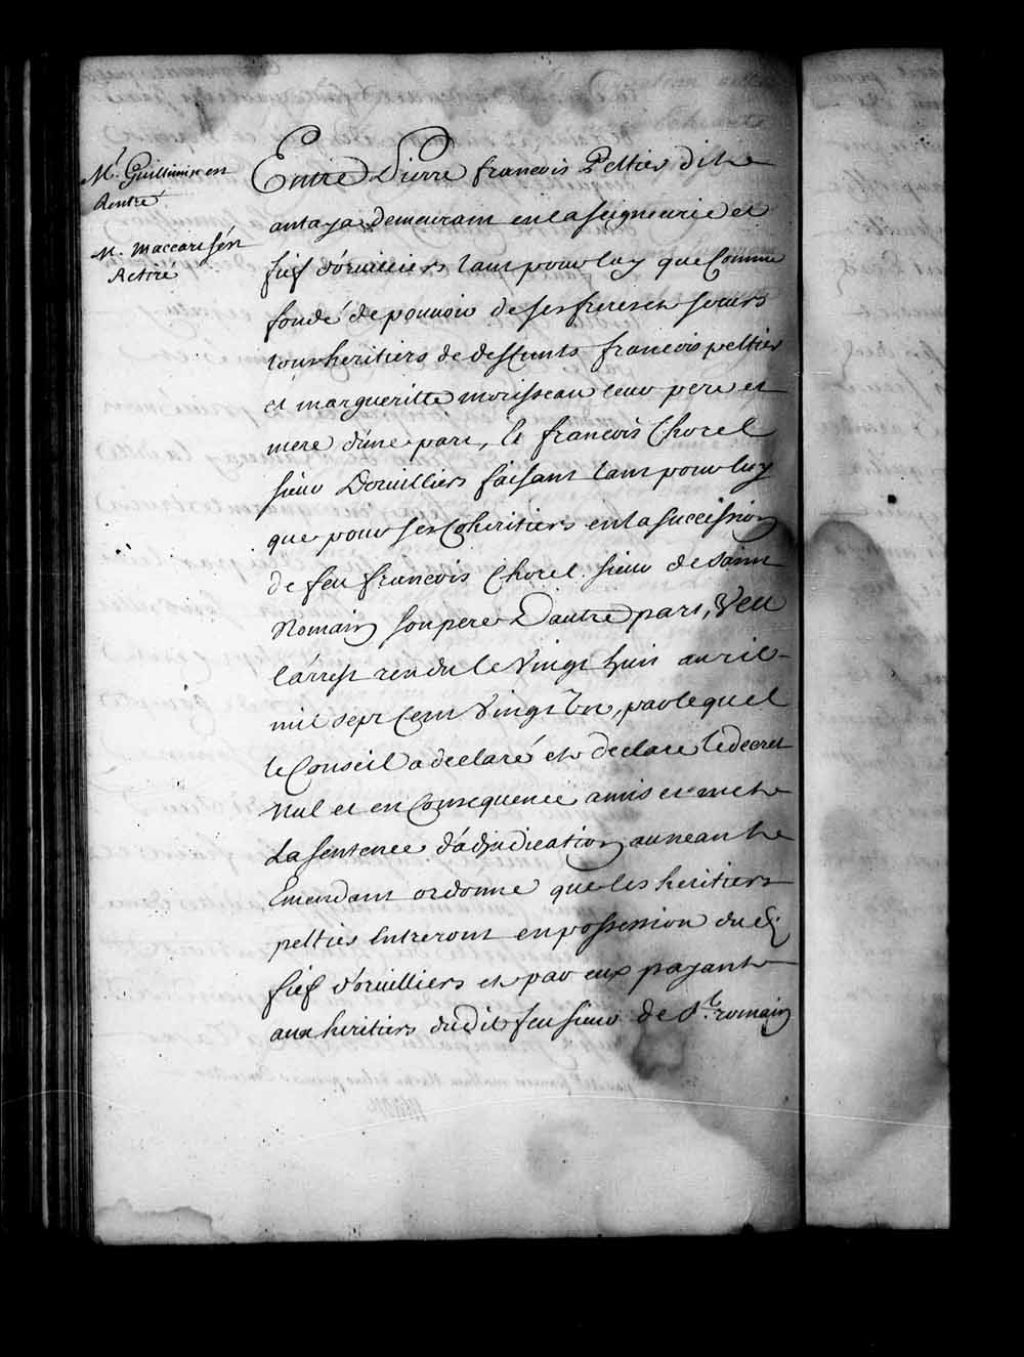 Mr. Guillimin en
Rentré
M. Maccart s'én
Retiré
Entre Pierre francois Peltier dit
antaya demeurant en la seigneurie et
fief d'oruilliers tant pour luy que Comme
fondé de pouuoir de ses freres et soeurs
tous heritiers de deffunts francois peltier
et margueritte morisseau leur pere et
mere d'une part, Et francois Chorel
sieur Doruilliers faisant tant pour luy
que pour ses Coheritiers en la succession
de feu francois Chorel sieur de saint
Romain son pere D'autre part, Veu
l'arrest rendu le Vingt huit auril
mil sept Cent Vingt Un, par lequel
le Conseil a declaré et declare le decret
Nul et en Consequence a mis et met
La sentence d'adjudication au neant
Emendant ordonne que les heritiers
peltier Entreront en possession dud.
fief d'oruilliers et par eux payant
aux heritiers dudit feu sieur de St. romain